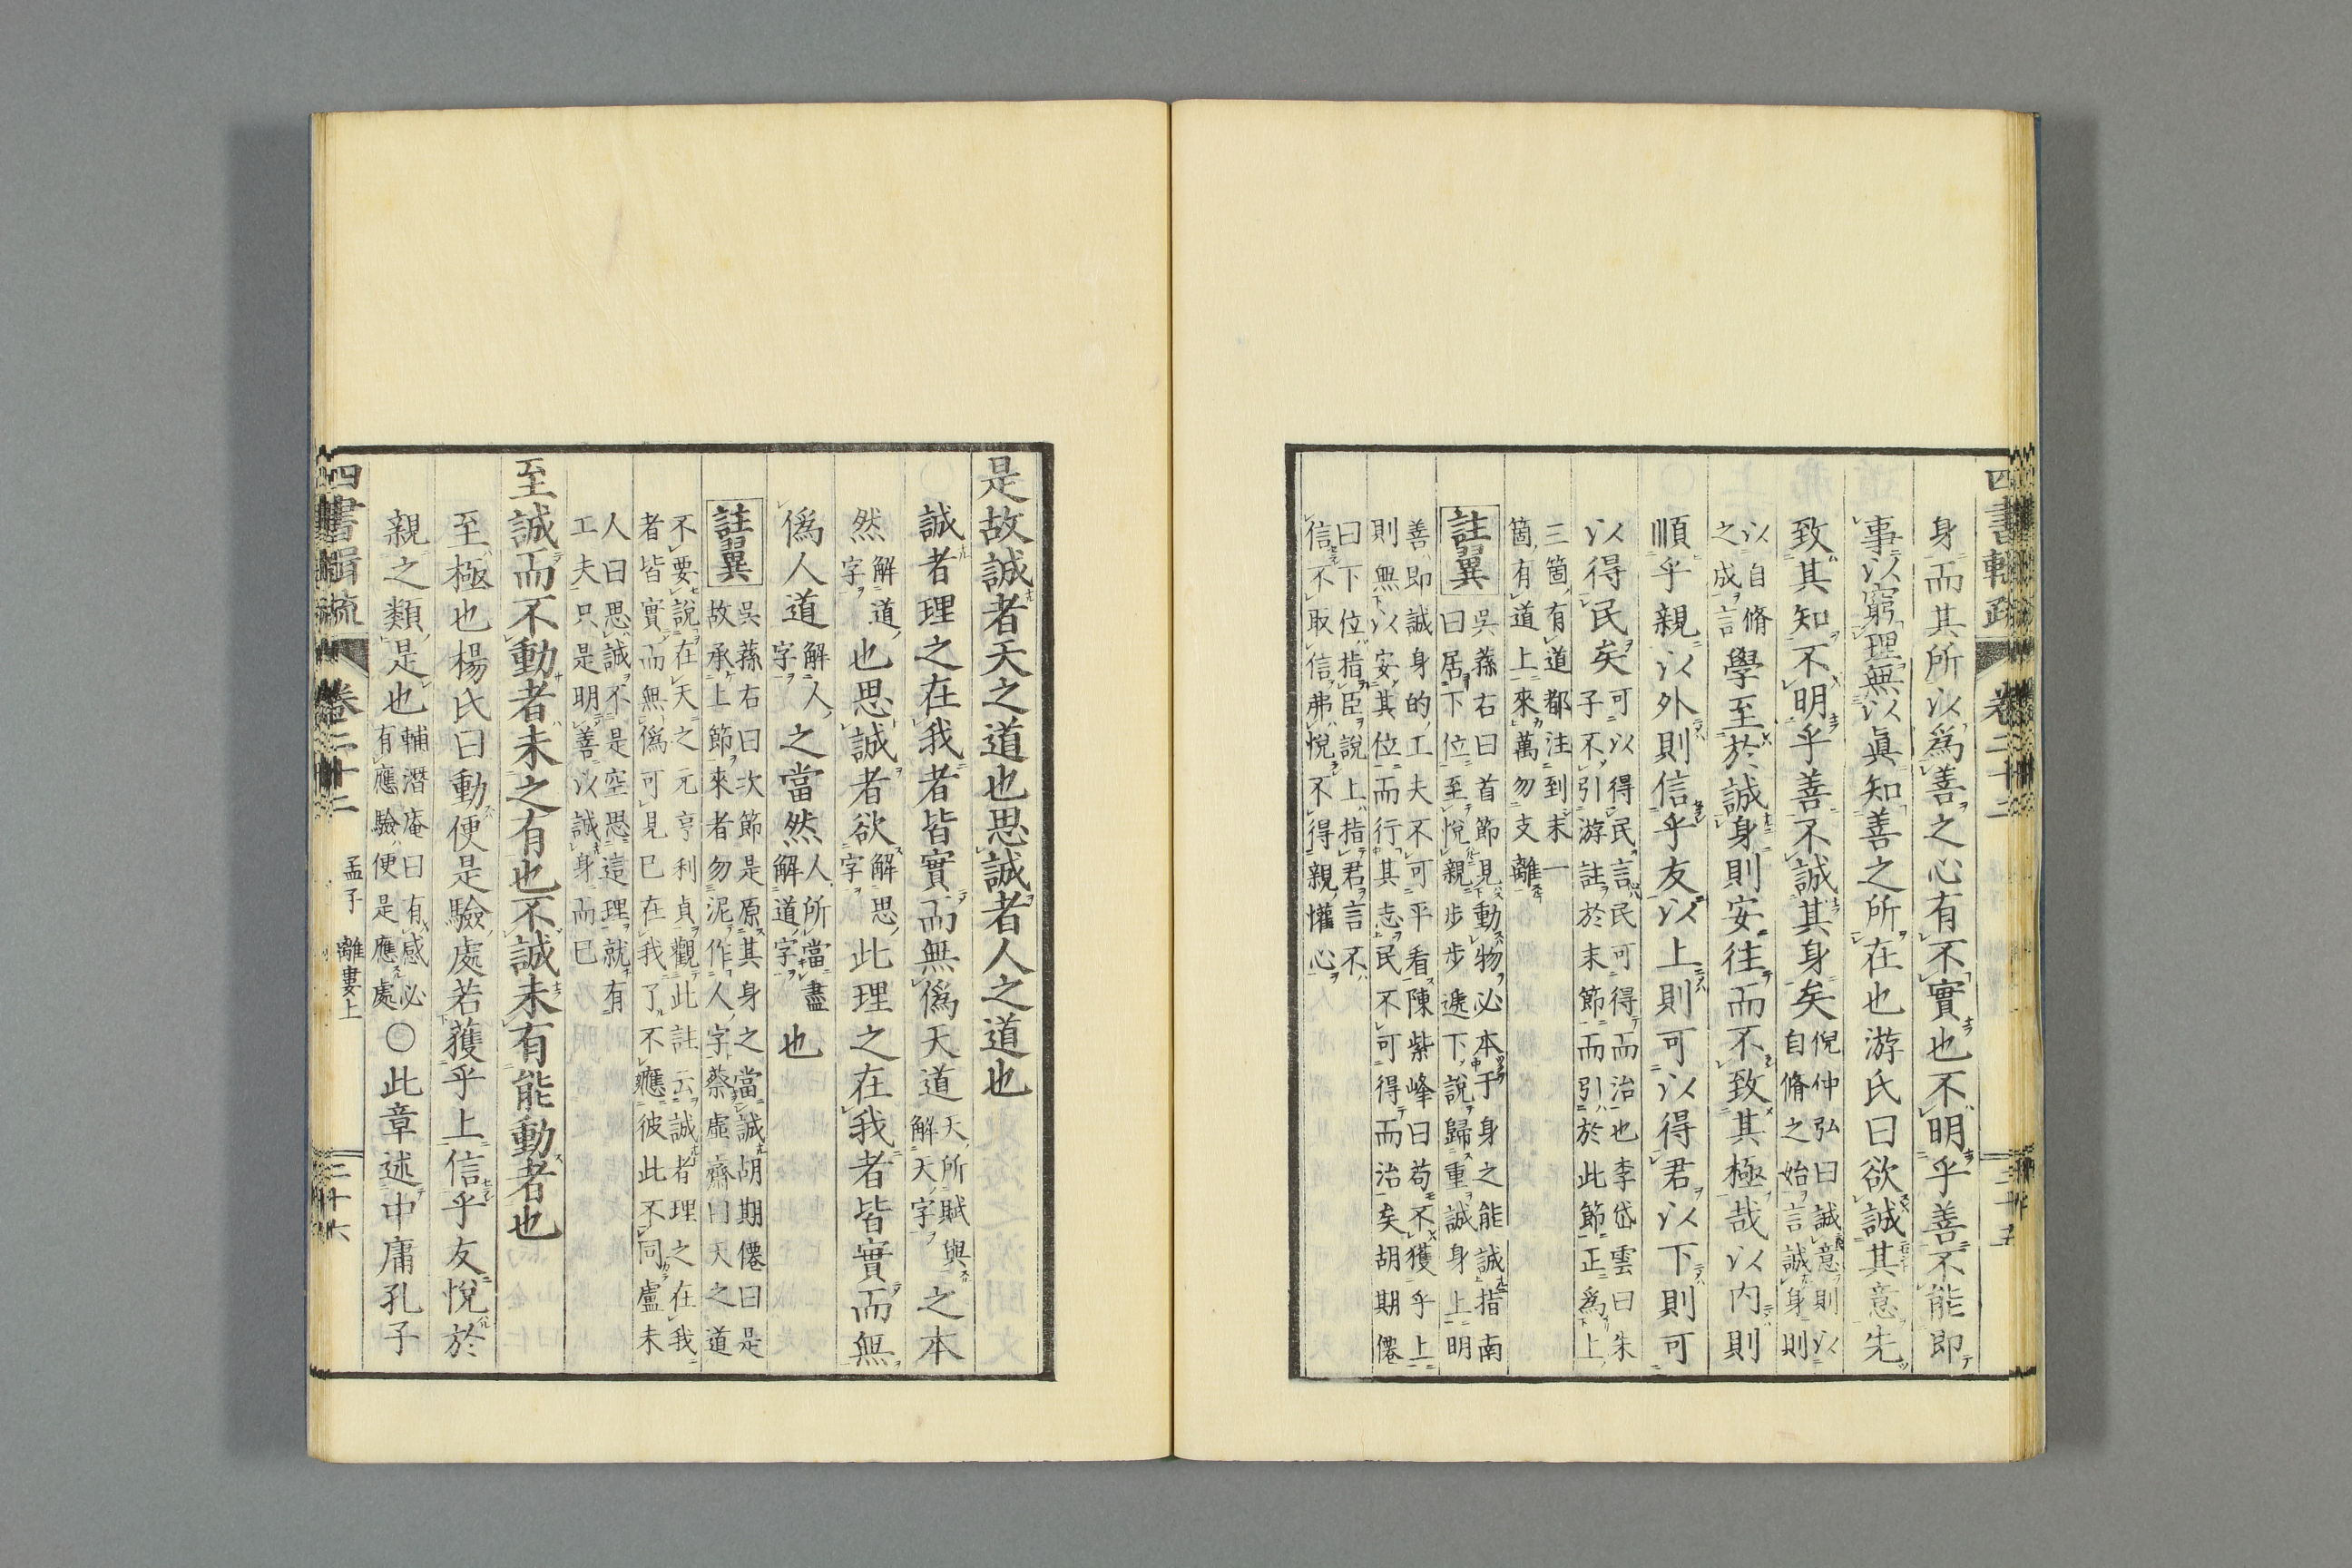 身而其所以爲善之心有不實也不明乎善不能即
事以窮理無以眞知善之所在也游氏曰欲誠其意先
致其知不明乎善不誠其身矣倪仲弘曰誠意則以
自脩之始言誠身則
以自脩
之成言學至於誠身則安往而不致其極哉以內則
順乎親以外則信乎友以上則可以得君以下則可
以得民矣可以得民言民可得而治也李岱雲曰朱
子不引游註於末節而引於此節正爲上
三箇有道都注到末一
箇有道上來萬勿支離
註翼吳蓀右曰首節見動物必本于身之能誠指南
曰居下位至悅親步步遞下說歸重誠身上明
善即誠身的工夫不可平看陳紫峰曰苟不獲乎上
則無以安其位而行其志民不可得而治矣胡期僊
曰下位指臣說上指君言不
信不取信弗悅不得親懽心
四書輯疏 卷二十二
是故誠者天之道也思誠者人之道也
誠者理之在我者皆實而無僞天道天所賦與
解天字之本
然解道
字也思誠者欲解思
字此理之在我者皆實而無
僞人道解人
字之當然人所當盡
解道字也
註翼吳蓀右曰次節是原其身之當誠胡期僊曰是
故承上節來者勿泥作人字蔡虛齋曰天之道
不要說在天之元亨利貞觀此註云誠者理之在我
者皆實而無僞可見已在我了不應彼此不同盧未
人曰思誠不是空思這理就有
工夫只是明善以誠身而已
至誠而不動者未之有也不誠未有能動者也
至極也楊氏曰動便是驗處若獲乎上信乎友悅於
親之類是也輔潛庵曰有感必
有應驗便是應處〇此章述中庸孔子
四書輯疏 卷二十二 孟子 離婁上 二十六